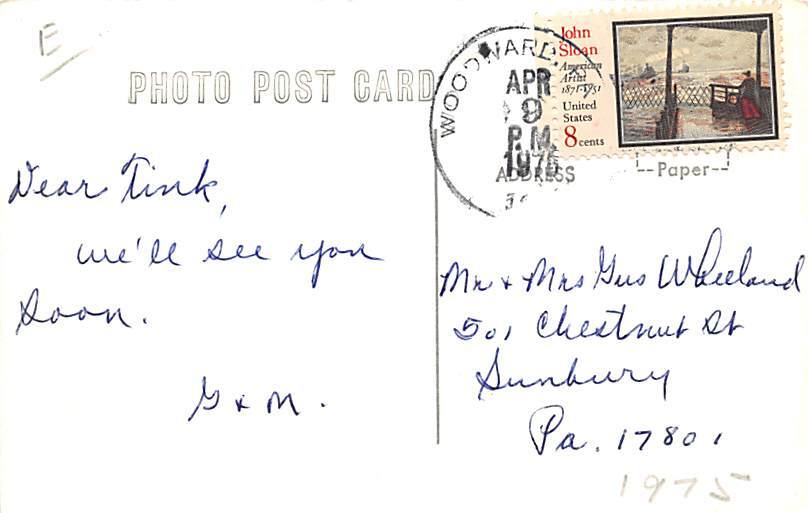 E
PHOTO POST CARD
WOODWARD,
APR
9
P.M.
1975
John
Sloan
American
Artist
1871-1951
United
States
8 cents
ADDRESS
--Paper--
Dear Tink,
we'll see you
soon.
G & M.
Mr & Mrs Gus Wheeland
501 Chestnut St
Sunbury
Pa. 17801
1975